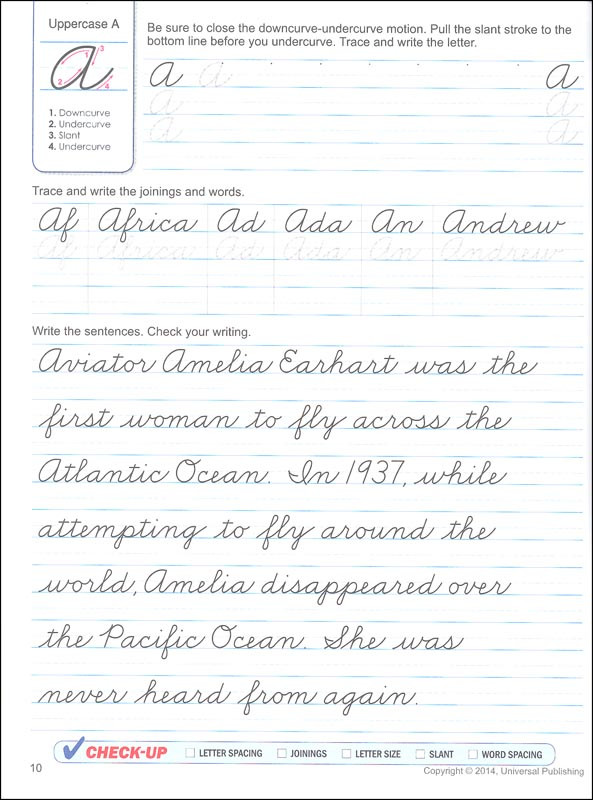 Uppercase A
1
2
3
4
1. Downcurve
2. Undercurve
3. Slant
4. Undercurve
Be sure to close the downcurve-undercurve motion. Pull the slant stroke to the
bottom line before you undercurve. Trace and write the letter.
A A A
A A
A A
Trace and write the joinings and words.
Af Africa Ad Ada An Andrew
Af Africa Ad Ada An Andrew
Write the sentences. Check your writing.
Aviator Amelia Earhart was the
first woman to fly across the
Atlantic Ocean. In 1937, while
attempting to fly around the
world, Amelia disappeared over
the Pacific Ocean. She was
never heard from again.
CHECK-UP LETTER SPACING JOININGS LETTER SIZE SLANT WORD SPACING
10
Copyright © 2014, Universal Publishing